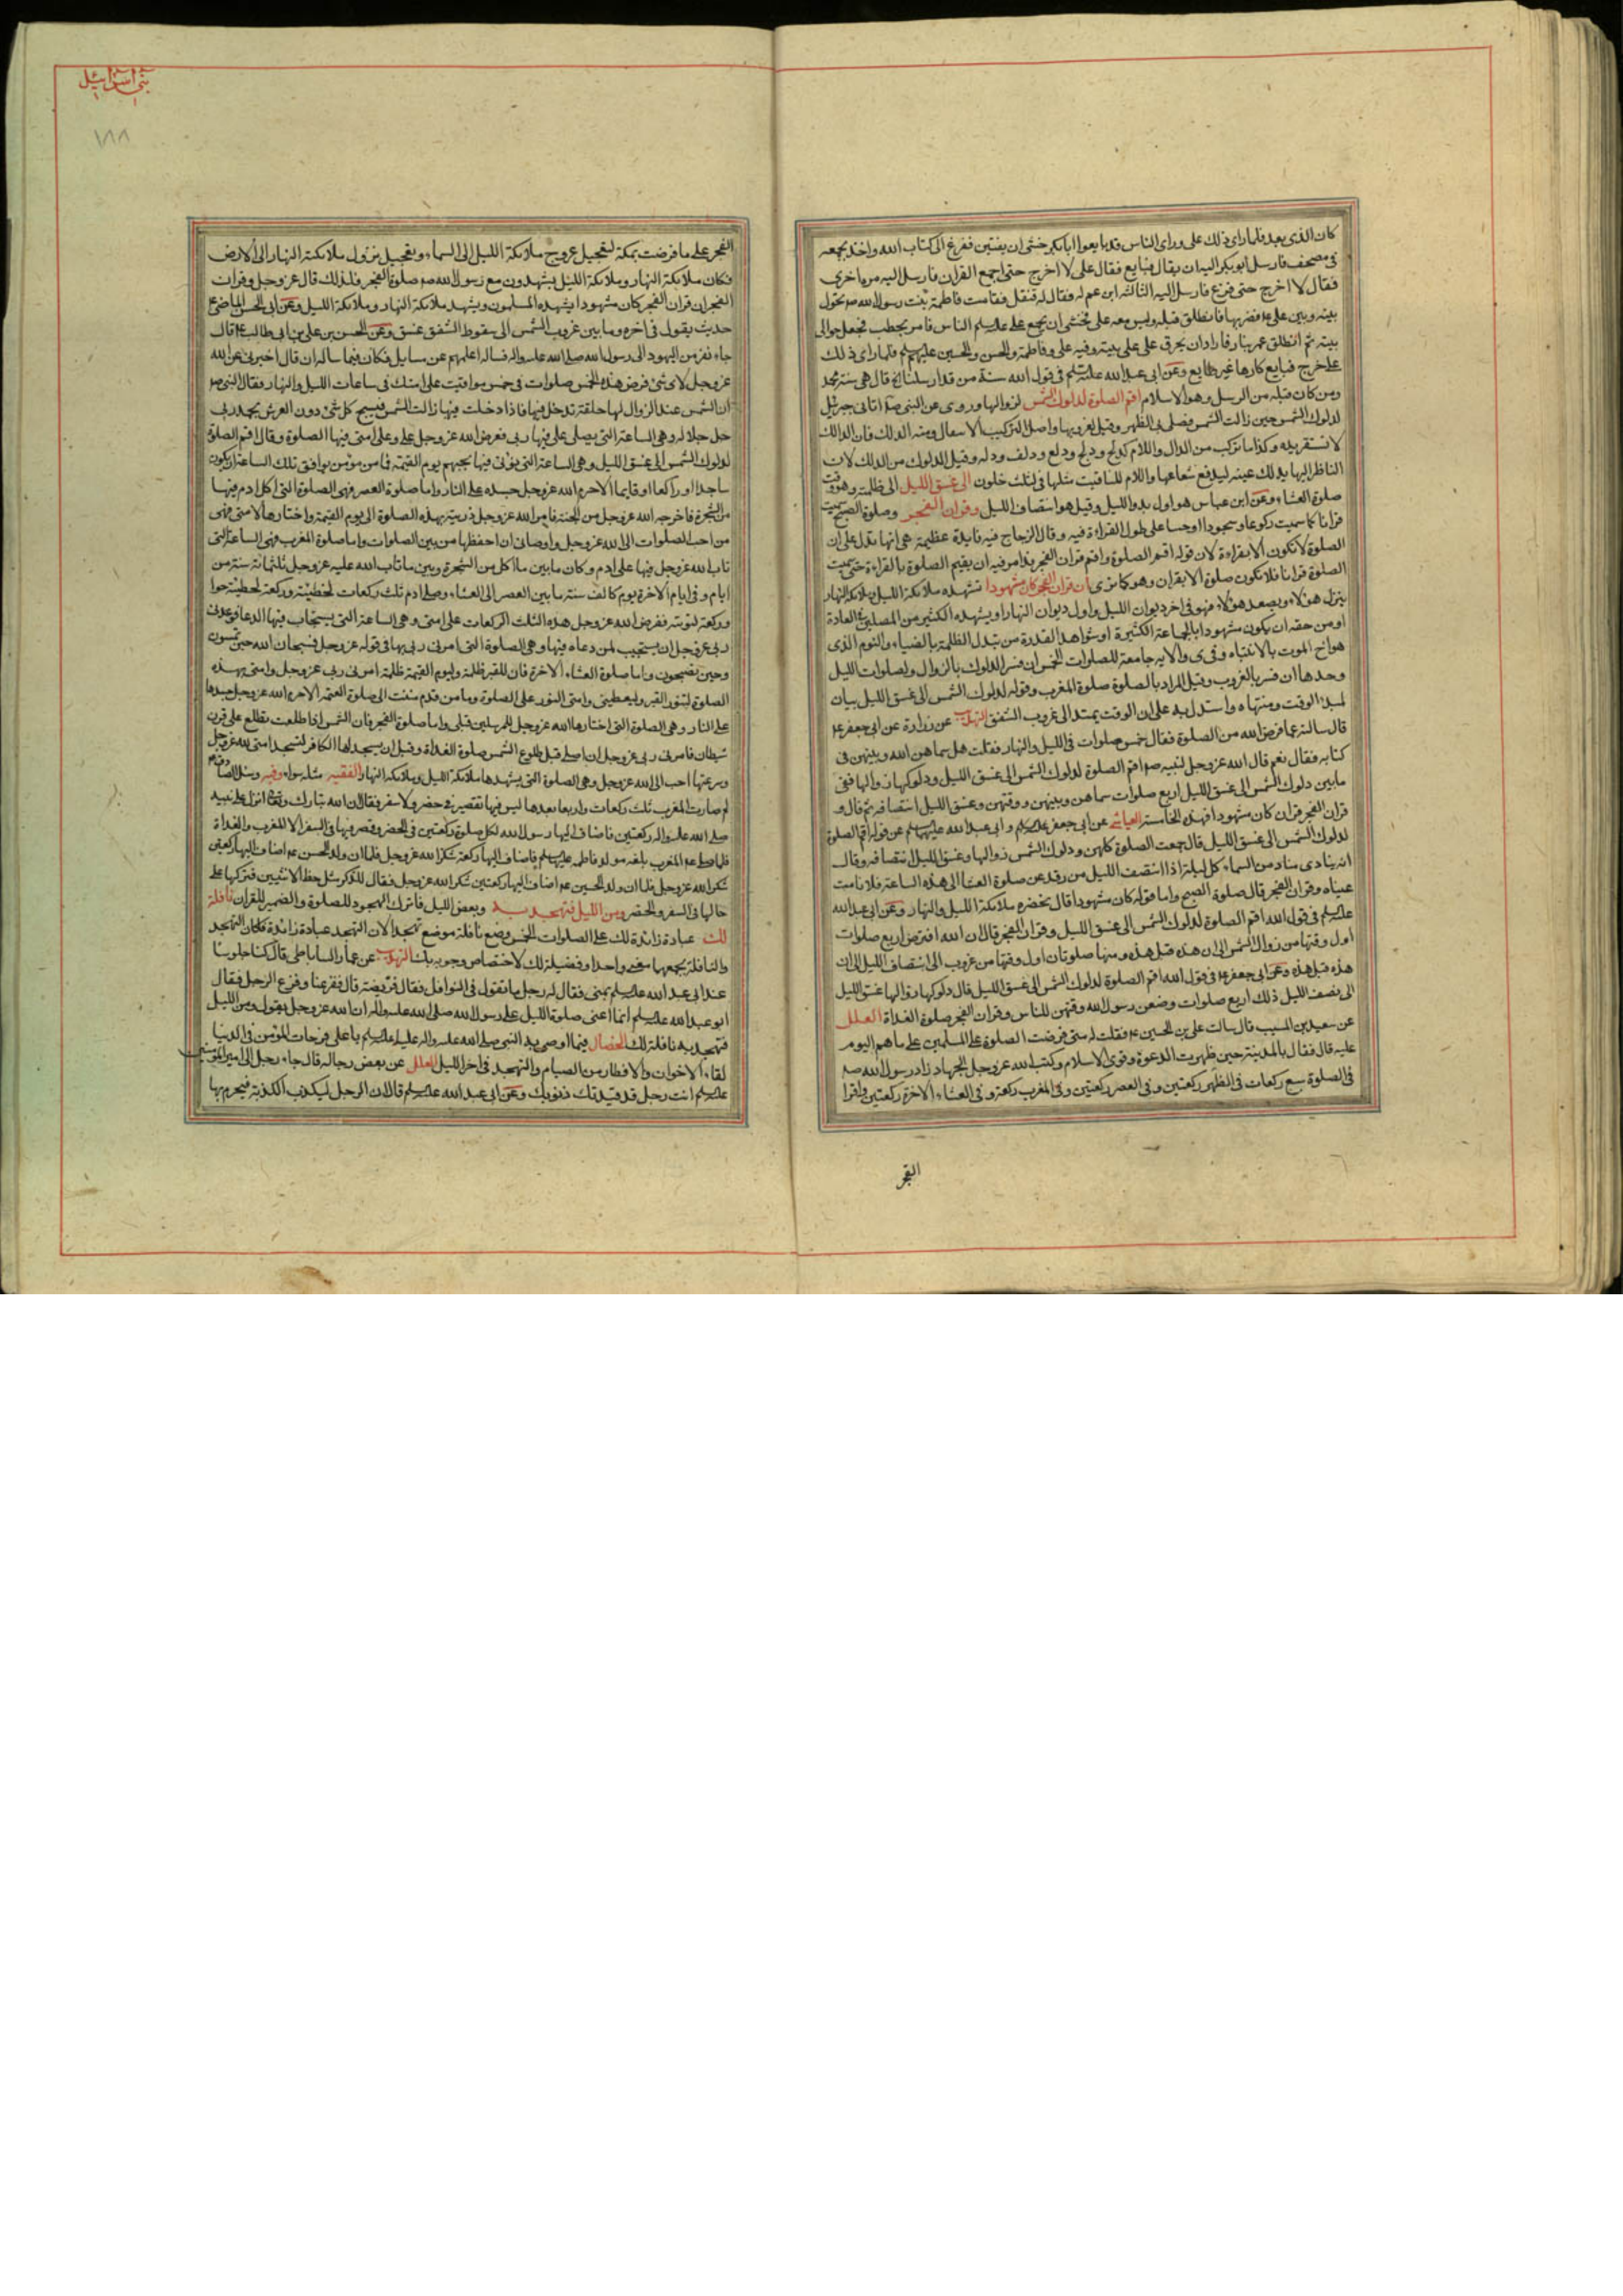 كان الذى بعد فلما راى ذلك على وراى الناس قد بايعوا ابابكر خشى ان يفتتن ففرغ الى كتاب الله واخذ يجمعه
فى مصحف فارسل ابوبكر اليه ان يقال فبايع فقال على لا اخرج حتى اجمع القران فارسل اليه مرة اخرى
فقال لا اخرج حتى فرغ فارسل اليه الثالثة ابن عم له فقال له قنفذ فقامت فاطمة بنت رسول الله صم تحول
بينه وبين على ع فضربها فانطلق قبله وليس معه على فخشى ان يجمع على عليه السلم الناس فامر بحطب فجعل حوالى
بيته ثم انطلق عمر بنار فاراد ان يحرق على على بيته وفيه على وفاطمة والحسن والحسين عليهم السلم فلما راى ذلك
على خرج فبايع كارها غير طايع وعن ابى عبدالله عليه السلم فى قول الله سنة من قد ارسلنا قال هى سنة محمد
ومن كان قبله من الرسل وهو الاسلام اقم الصلوة لدلوك الشمس لزوالها وروى عن النبى صم اتانى جبرئيل
لدلوك الشمس حين زالت الشمس فصلى بى الظهر وقيل لغروبها واصل التركيب الانتقال ومنه الدلك فان الدالك
لا تستقر يده وكذا ما تركب من الدال واللام كدلج ودلح ودلع ودلف ودله وقيل الدلوك من الدلك لان
الناظر اليها يدلك عينه ليدفع شعاعها واللام للتاقيت مثلها فى لثلث خلون الى غسق الليل الى ظلمته وهو وقت
صلوة العشاء وعن ابن عباس هو اول بدو الليل وقيل هو انتصاف الليل وقران الفجر وصلوة الصبح سميت
قرانا كما سميت ركوعا وسجودا وحسا على طول القراءة فيه وقال الزجاج فيه فايدة عظيمة هى انها تدل على ان
الصلوة لا تكون الا بقراءة لان قوله اقم الصلوة واقم قران الفجر قد امر فيه ان يقيم الصلوة بالقراءة حتى سميت
الصلوة قرانا فلا تكون صلوة الا بقران وهو كما ترى ان قران الفجر كان مشهودا تشهده ملائكة الليل وملائكة النهار
ينزل هؤلاء ويصعد هؤلاء فهو فى اخر ديوان الليل واول ديوان النهار او يشهده الكثير من المصلين فى العادة
او من حقه ان يكون مشهودا بالجماعة الكثيرة او شواهد القدرة من تبدل الظلمة بالضياء والنوم الذى
هو اخ الموت بالانتباه والاية جامعة للصلوات الخمس ان فسر الدلوك بالزوال ولصلوات الليل
وحدها ان فسر بالغروب وقيل المراد بالصلوة صلوة المغرب وقوله لدلوك الشمس الى غسق الليل بيان
لمبدا الوقت ومنتهاه واستدل به على ان الوقت يمتد الى غروب الشفق التهذيب عن زرارة عن ابى جعفر ع
قال سالته عما فرض الله من الصلوة فقال خمس صلوات فى الليل والنهار فقلت هل سماهن الله وبينهن فى
كتابه فقال نعم قال الله عزوجل لنبيه صم اقم الصلوة لدلوك الشمس الى غسق الليل ودلوكها زوالها ففى
مابين دلوك الشمس الى غسق الليل اربع صلوات سماهن وبينهن ووقتهن وغسق الليل انتصافه ثم قال و
قران الفجر قران كان مشهودا فهذه الخامسة العياشى عن ابى جعفر عليه السلم وابى عبدالله عليه السلم عن قوله اقم الصلوة
لدلوك الشمس الى غسق الليل قال جمعت الصلوة كلهن ودلوك الشمس زوالها وغسق الليل انتصافه وقال
انه ينادى مناد من السماء كل ليلة اذا انتصف الليل من رقد عن صلوة العشا الى هذه الساعة فلا نامت
عيناه وقران الفجر قال صلوة الصبح واما قوله كان مشهودا قال تحضره ملائكة الليل والنهار وعن ابى عبدالله
عليه السلم فى قول الله اقم الصلوة لدلوك الشمس الى غسق الليل وقران الفجر قال ان الله افترض اربع صلوات
اول وقتها من زوال الشمس الا ان هذه قبل هذه ومنها صلوتان اول وقتها من غروب الى انتصاف الليل الا ان
هذه قبل هذه وعن ابى جعفر ع فى قول الله اقم الصلوة لدلوك الشمس الى غسق الليل قال دلوكها زوالها غسق الليل
الى نصف الليل ذلك اربع صلوات وضعهن رسول الله ووقتهن للناس وقران الفجر صلوة الغداة العلل
عن سعيد بن المسيب قال سالت على بن الحسين ع فقلت له متى فرضت الصلوة على المسلمين على ما هم اليوم
عليه قال فقال بالمدينة حين ظهرت الدعوة وقوى الاسلام وكتب الله عزوجل الجهاد زاد رسول الله صم
فى الصلوة سبع ركعات فى الظهر ركعتين وفى العصر ركعتين وفى المغرب ركعة وفى العشاء الاخرة ركعتين واقرا
الفجر
بنى اسرائيل
١٨٨
الفجر على ما فرضت بمكة لتعجيل عروج ملائكة الليل الى السماء وتعجيل نزول ملائكة النهار الى الارض
فكان ملائكة النهار وملائكة الليل يشهدون مع رسول الله صم صلوة الفجر فلذلك قال عزوجل وقران
الفجر ان قران الفجر كان مشهودا يشهده المسلمون ويشهد ملائكة النهار وملائكة الليل وعن ابى الحسن الماضى ع
حديث يقول فى اخره وما بين غروب الشمس الى سقوط الشفق غسق وعن الحسن بن على بن ابى طالب ع قال
جاء نفر من اليهود الى رسول الله صلى الله عليه واله فساله اعلمهم عن مسايل فكان فيما ساله ان قال اخبرنى عن الله
عزوجل لاى شئ فرض هذه الخمس صلوات فى خمس مواقيت على امتك فى ساعات الليل والنهار فقال النبى صم
ان الشمس عند الزوال لها حلقة تدخل فيها فاذا دخلت فيها زالت الشمس فيسبح كل شئ دون العرش بحمد ربى
جل جلاله وهى الساعة التى يصلى على فيها ربى ففرض الله عزوجل على وعلى امتى فيها الصلوة وقال اقم الصلوة
لدلوك الشمس الى غسق الليل وهى الساعة التى يؤتى فيها بجهنم يوم القيمة فما من مؤمن يوافق تلك الساعة ان يكون
ساجدا او راكعا او قايما الا حرم الله عزوجل جسده على النار واما صلوة العصر فهى الصلوة التى اكل ادم فيها
من الشجرة فاخرجه الله عزوجل من الجنة فامر الله عزوجل ذريته بهذه الصلوة الى يوم القيمة واختارها لامتى فهى
من احب الصلوات الى الله عزوجل واوصانى ان احفظها من بين الصلوات واما صلوة المغرب فهى الساعة التى
تاب الله عزوجل فيها على ادم وكان مابين ما اكل من الشجرة وبين ما تاب الله عليه عزوجل ثلثمائة سنة من
ايام وفى ايام الاخرة يوم كالف سنة مابين العصر الى العشاء وصلى ادم ثلث ركعات لخطيئته وركعة لخطيئة حوا
وركعة لتوبته ففرض الله عزوجل هذه الثلث الركعات على امتى وهى الساعة التى يستجاب فيها الدعا فوعدنى
ربى عزوجل ان يستجيب لمن دعاه فيها وهى الصلوة التى امرنى ربى بها فى قوله عزوجل فسبحان الله حين تمسون
وحين تصبحون واما صلوة العشاء الاخرة فان للقبر ظلمة وليوم القيمة ظلمة امرنى ربى عزوجل وامتى بهذه
الصلوة لتنور القبر وليعطينى وامتى النور على الصلوة وما من قدم مشت الى صلوة العتمة الا حرم الله عزوجل جسدها
على النار وهى الصلوة التى اختارها الله عزوجل للمرسلين قبلى واما صلوة الفجر فان الشمس اذا طلعت تطلع على قرن
شيطان فامرنى ربى عزوجل ان اصلى قبل طلوع الشمس صلوة الغداة وقبل ان يسجد لها الكافر لتسجد امتى لله عزوجل
وسرعتها احب الى الله عزوجل وهى الصلوة التى يشهدها ملائكة الليل وملائكة النهار الفقيه مثله سواء وفيه وسئل الصادق ع
لم صارت المغرب ثلث ركعات واربعا بعدها ليس فيها تقصير فى حضر ولا سفر فقال ان الله تبارك وتعالى انزل على نبيه
صلى الله عليه واله ركعتين فاضاف اليها رسول الله لكل صلوة ركعتين فى الحضر وقصر فيها فى السفر الا المغرب والغداة
فلما صلى عم المغرب بلغه مولد فاطمه عليها السلم فاضاف اليها ركعة شكرا لله عزوجل فلما ان ولد الحسن عم اضاف اليها ركعتين
شكرا لله عزوجل فلما ان ولد الحسين عم اضاف اليها ركعتين شكرا لله عزوجل فقال للذكر مثل حظ الانثيين فتركها على
حالها فى السفر والحضر ومن الليل فتهجد به وبعض الليل فاترك الهجود للصلوة والضمير للقران نافلة
لك عبادة زائدة لك على الصلوات الخمس وضع نافلة موضع تهجدا لان التهجد عبادة زائدة فكان التهجد
والنافلة يجمعها معنى واحد او فضيلة لك لاختصاص وجوبه بك التهذيب عن عمار الساباطى قال كنا جلوسا
عند ابى عبدالله عليه السلم بمنى فقال له رجل ما تقول فى النوافل فقال فريضة قال ففزعنا وفزع الرجل فقال
ابوعبدالله عليه السلم انما اعنى صلوة الليل على رسول الله صلى الله عليه واله ان الله عزوجل يقول ومن الليل
فتهجد به نافلة لك الخصال فيما اوصى به النبى صلى الله عليه واله عليا عليه السلم يا على فرحات للمؤمن فى الدنيا
لقاء الاخوان والافطار من الصيام والتهجد فى اخر الليل العلل عن بعض رجاله قال جاء رجل الى امير المؤمنين
عليه السلم انت رجل قد قيدتك ذنوبك وعن ابى عبدالله عليه السلم قال ان الرجل ليكذب الكذبة فيحرم بها